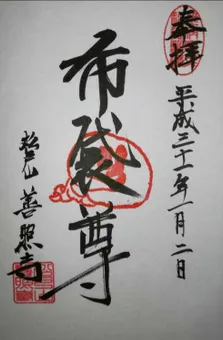 奉拝
平成三十一年一月二日
布袋尊
善照寺